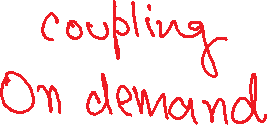 coupling
On demand